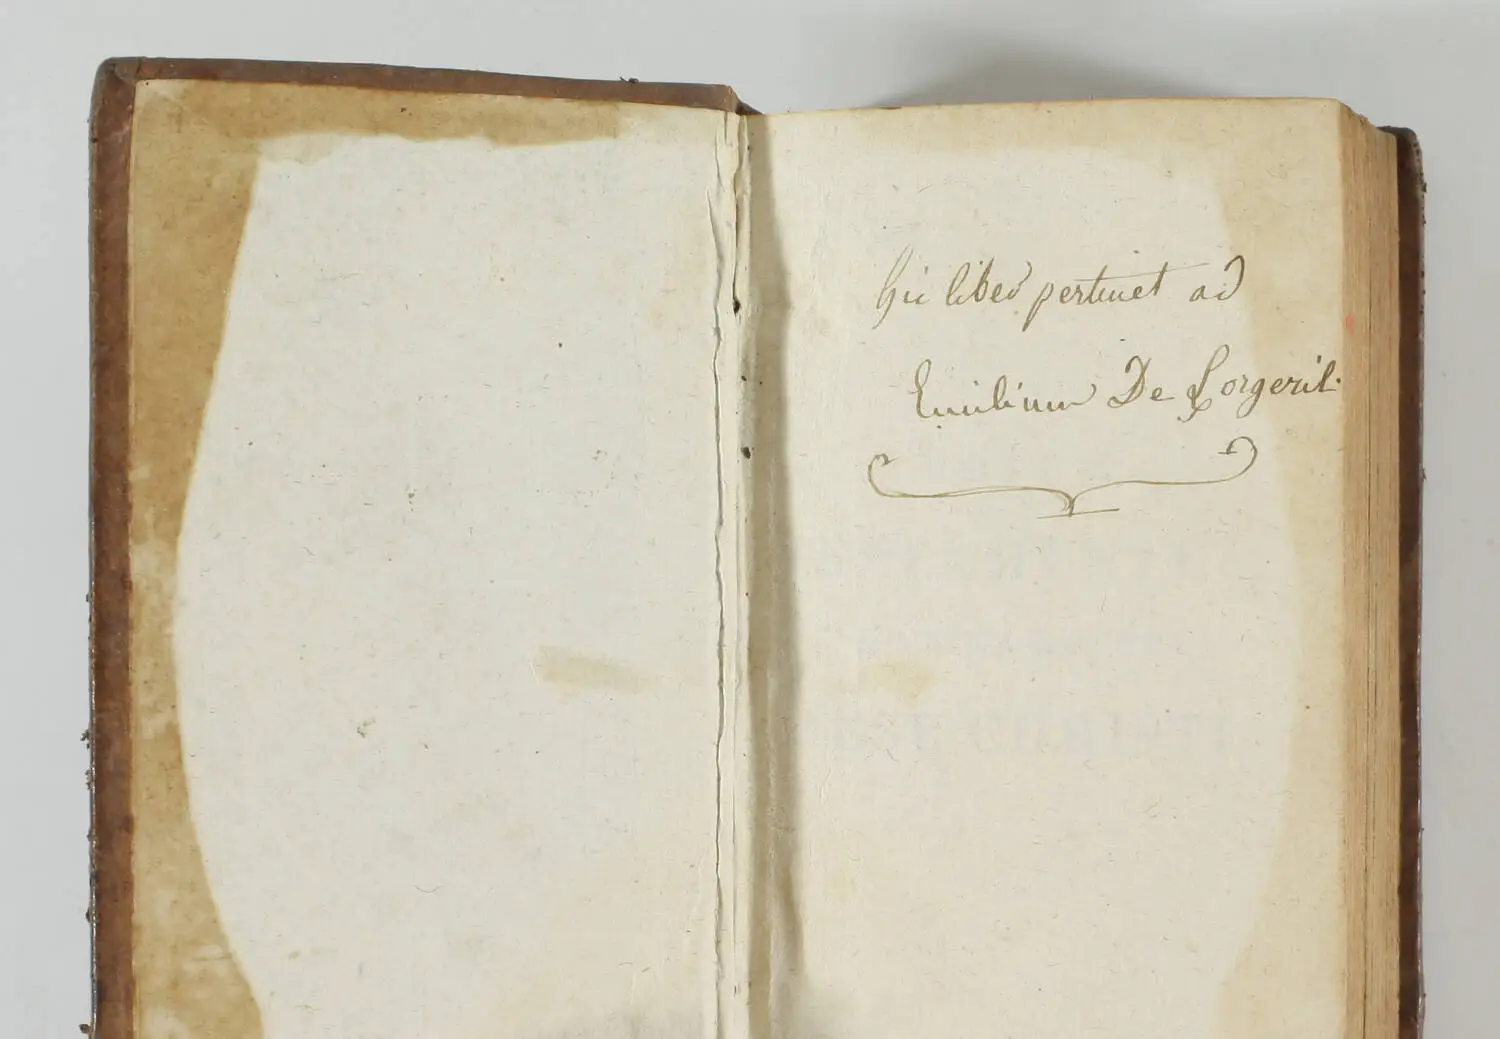 hic liber pertinet ad
Emilium De Lorgeril.